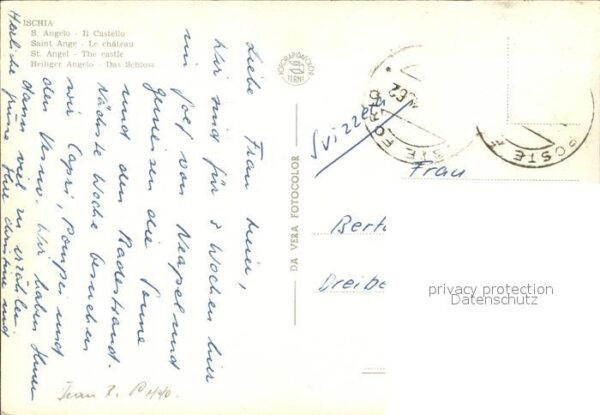 ISCHIA
S. Angelo - Il Castello
Saint Ange - Le château
St. Angel - The castle
Heiliger Angelo - Das Schloss
Liebe Frau Meier,
Wir sind für 3 Wochen hier
im Golf von Neapel und
genießen die Sonne
und den Badestrand.
Nächste Woche besuchen
wir Capri, Pompei und
den Vesuv. Wir haben Ihnen
dann viel zu erzählen.
Herzliche Grüsse Ihre Christine und
DA VERA FOTOCOLOR
Svizzera
Frau
Bert
Dreibe
POSTE
privacy protection
Datenschutz